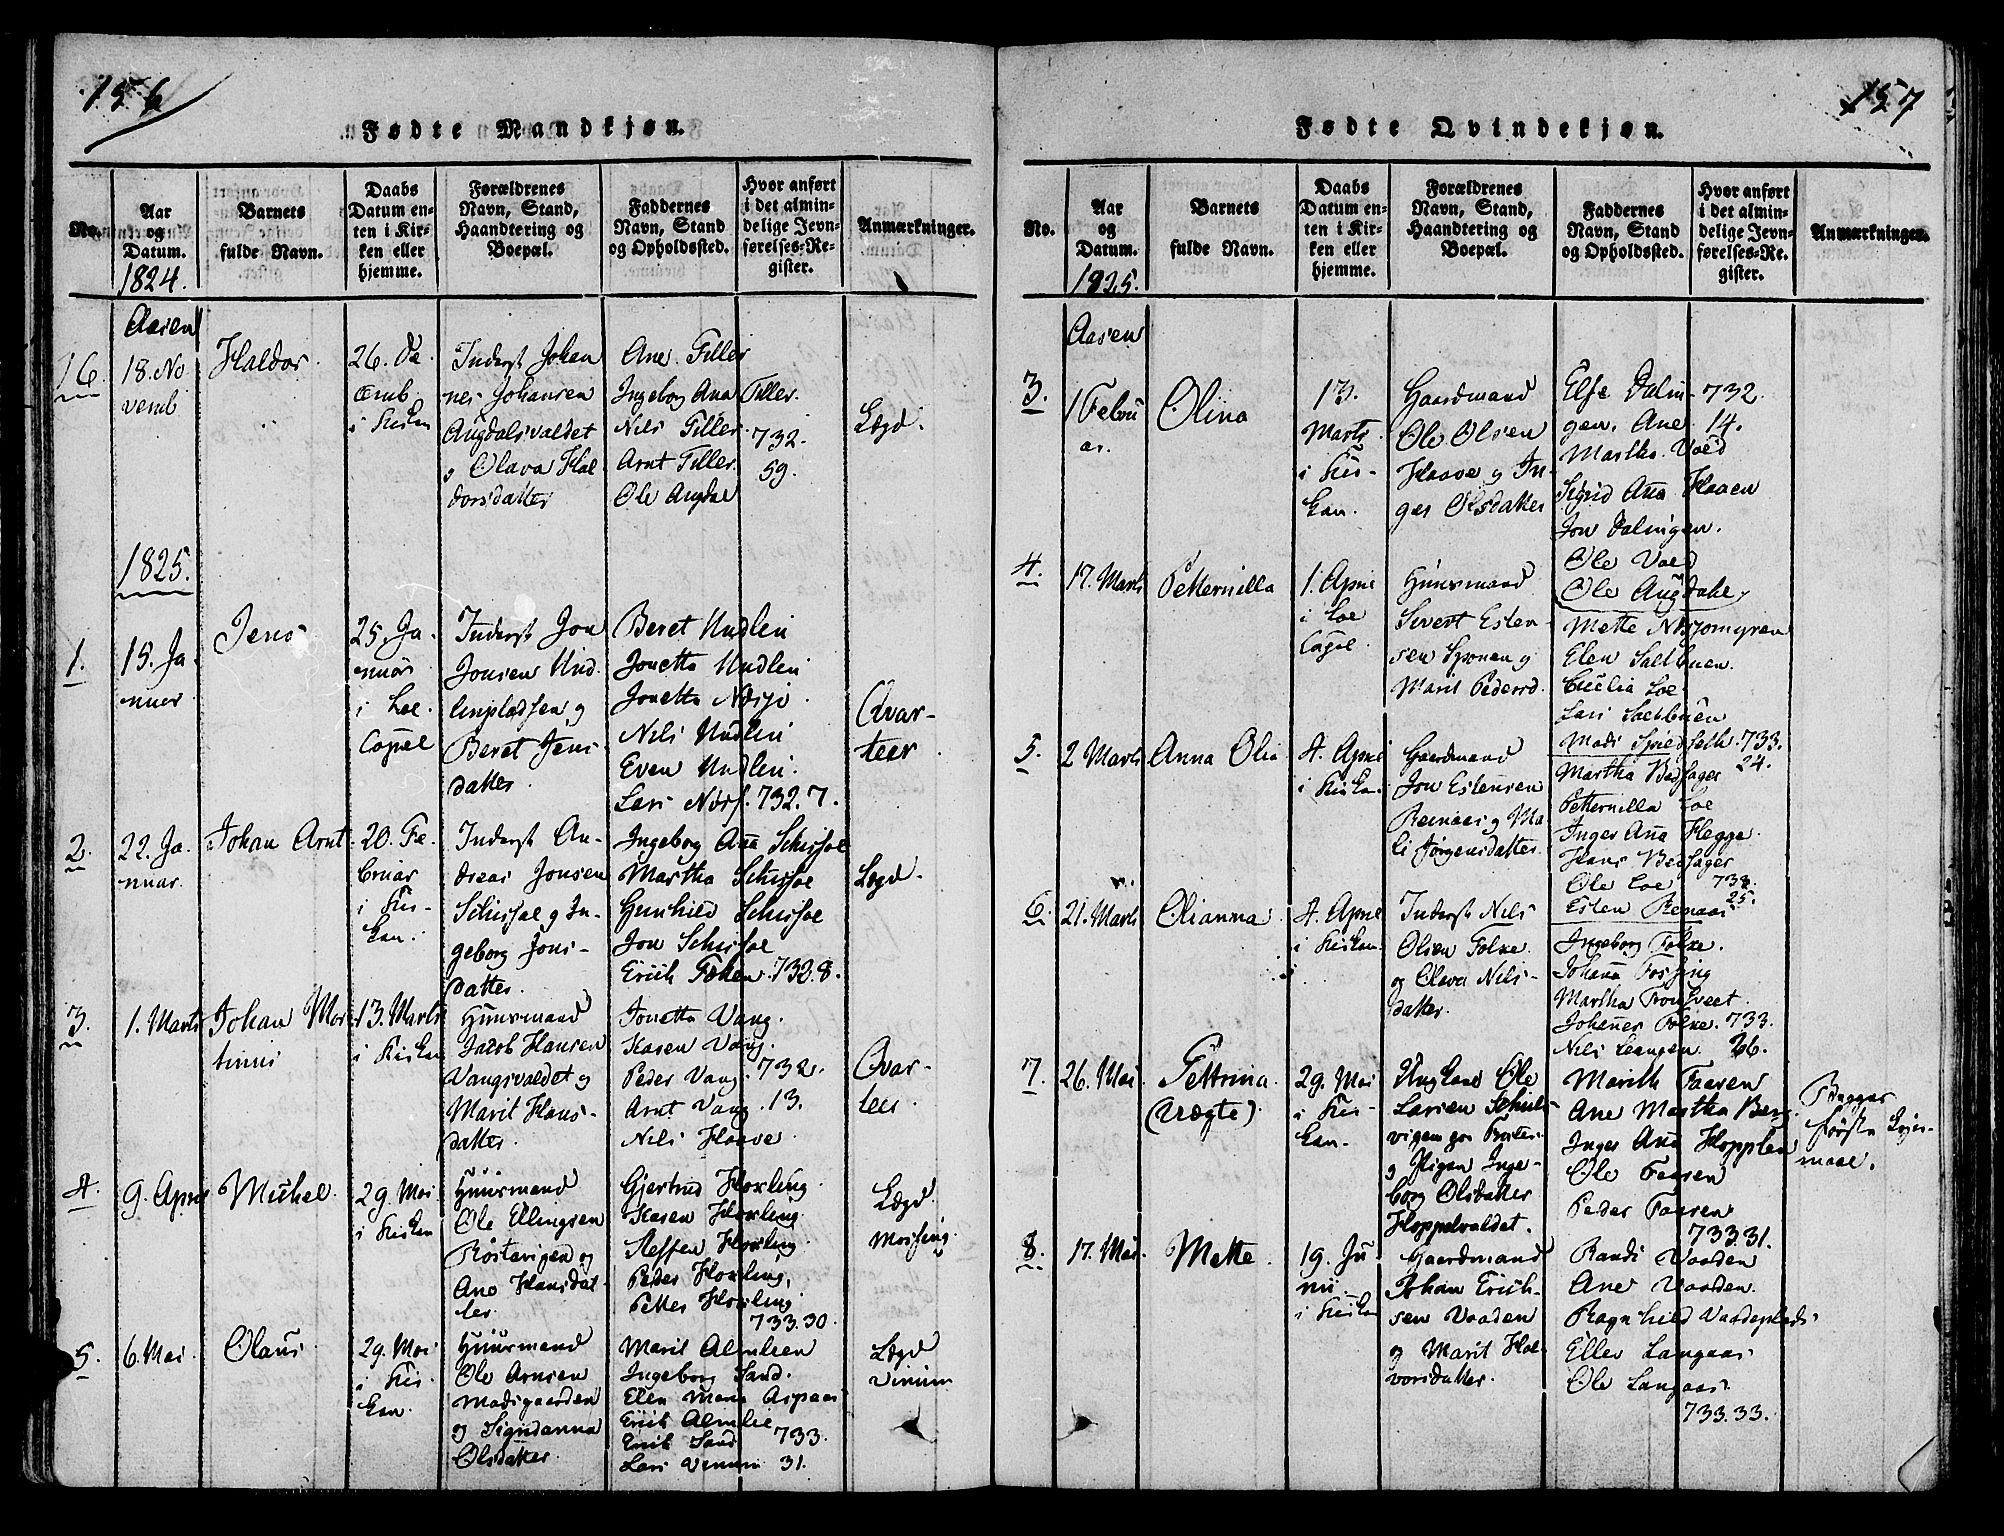 156
Fødte Mandkjøn.
No.
Aar
og
Datum.
1824.
Barnets
fulde Navn.
Daabs
Datum en-
ten i Kir-
ken eller
hjemme.
Forældrenes
Navn, Stand,
Haandtering og
Boepæl.
Faddernes
Navn, Stand
og Opholdssted.
Hvor anført
i det almin-
delige Jevn-
førelses-Re-
gister.
Anmærkninger.
Aasen
16.
18. No
vemb
Haldor.
26. De
cemb
i Kirken
Inderst Johan
nes Johansen
Augdalsvaldet
og Olava Hal
dorsdatter
Ane Tiller
Ingeborg Ana Tiller.
Nils Tiller
Arnt Tiller
Ole Augdal
732.
59.
Lægd.
1825.
1.
15. Ja
nuer
Jens
25. Ja-
nuar
i Loe
Capel
Inderst Jon
Jonsen Und
linpladsen og
Beret Jens
datter.
Beret Undlin
Jonetta Undlin
Jonetta Nossjo
Nils Undlin
Even Undlin.
Lars 732.7.
Qvar-
teer
2.
22. Ja-
nuar.
Johan Arnt
20. Fe
bruar
i Kir-
ken.
Inderst An-
dreas Jonsen
og In-
geborg Jons-
datter.
Ingeborg Ana
Martha
Gunhild
Jon
Erich 732.8.
Lægd.
3.
1. Marts
Johan Mor-
tinus
13. Marts
i Kirken
Huusmand
Jacob Hansen
Vangsvaldet og
Marit Hans-
datter.
Jonetta Vang.
Karen Vang.
Peder Vang. 732.
Arnt Vang. 13.
Nils Haave.
Qvar-
teer.
4.
9. April
Michel.
29. Mai
i Kirken
Huusmand
Ole Ellingsen
Røstavigen og
Ane Hansdat-
ter.
Gjertrud Hoxling.
Karen Hoxling.
Steffen Hoxling
Peder Hoxling,
Petter Hoxling
733.30.
Lægd
Mossing.
5.
6. Mai.
Olaus
29. Mai
i Kir-
ken.
Huusmand
Ole Arnsen
Madsgaarden
og Sigridanna
Olsdatter.
Marit Almlien
Ingeborg Sand.
Elen Maria Aspaas
Erik Almlie
Erik Sand 733.
Lars Vinum 31.
Lægd
Vinum
157
Fødte Qvindekjøn.
No.
Aar
og
Datum.
1825.
Barnets
fulde Navn.
Daabs
Datum en-
ten i Kir-
ken eller
hjemme.
Forældrenes
Navn, Stand,
Haandtering og
Boepæl.
Faddernes
Navn, Stand
og Opholdssted.
Hvor anført
i det almin-
delige Jevn-
førelses-Re-
gister.
Anmærkninger.
Aasen
3.
1 Febru
ar.
Olina
13.
Marts.
i Kir-
ken.
Gaardmand
Ole Olsen
Haave og In-
ger Olsdatter
Else Dalin- 732.
gen. Ane 14.
Martha Voed
Sigrid Ana Haaen
Jon Dalingen.
Ole Voed
Ole Augdahl
4.
17. Marts
Petternilla
1. April
i Loe
Capel
Huusmand
Sivert Esten-
sen Sponen og
Marit Pedersd.
Mette
Elen Saltbuen
Cicilia Loe.
Lars Saltbuen
Mads 733.
24.
5.
2 Marts
Anna Olia
4. April
i Kirken.
Gaardmand
Jon Estensen
Reinaas og Ma-
li Jørgensdatter.
Martha Bedsager
Petternilla Loe
Inger Ana Flegge.
Hans Bedsager
Ole Loe 733.
Esten Renaas 25.
6.
21. Marts
Olianna
4. April
i Kirken.
Inderst Nils
Olsen Folke.
og Olava Nils-
datter.
Ingeborg Folke.
Johana Fossing
Martha
Johanes Folke. 733.
Nils Langen. 26.
7.
26. Mai
Pettrina.
(uægte).
29. Mai
i Kir-
ken.
Ungkarl Ole
Larsen
og Pigen Inge-
borg Olsdatter
Hoppelvaldet.
Marith Faaren
Ane Martha Berg.
Inger Ana Hopplen
Ole Faaren
Peder Faaren
733.31.
Begges
første Leier-
maal.
8.
17. Mai.
Mette.
19. Ju
nii
i Kirken
Gaardmand
Johan Erich-
sen Vaaden
og Marit Hal-
vorsdatter.
Randi Vaaden
Ane Vaaden.
Ragnhild Vaadeplads.
Eller Langaas
Ole Langaas.
733.33.